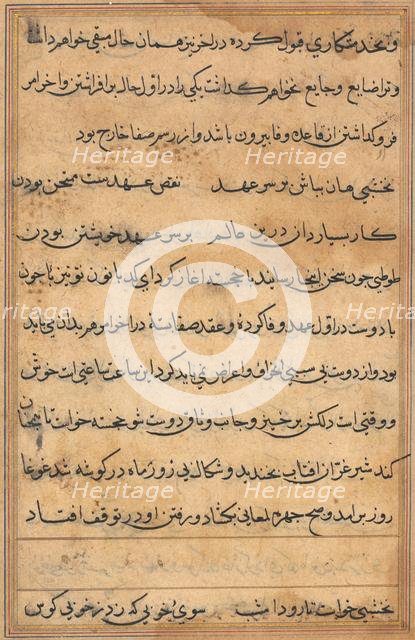 وبخدمتکاری قبول کرده در اخر نیز همان حال مبقی خواهم داشت
و ترا ضایع و جایع نخواهم گذاشت یکی را در اول حال برافراشتن و اخر امر
فرو گذاشتن از قاعده وفا بیرون باشد و از رسم صفا خارج بود
نخشبی هان بباش بر سر عهد نقض عهدست ممتحن بودن
کار بسیار دان درین عالم بر سر عهد خویشتن بودن
طوطی چون سخن اینجا رسانید با خجسته آغاز کرد ای کدبانو تو نیز چون
با دوست در اول عهد وفا کرده و عقد صفا بسته در اخر امر هم بدان می باید
بود و از دوست بی سببی انحراف و اعراض نمی باید کرد این ساعت ساعتی است خوش
و وقتی است دلکش برخیز و جانب وثاق دوست شو خجسته خواست تا همچنان
کند شیر غران افتاب بخندید و شکال بی روز ماه در گوشه شد غوغا
روز برامد و صبح چهره لمعانی بکشاد و رفتن او در توقف افتاد
نخشبی خواست تا رود امشب سوی خوبی که زد ز خوبی کوس